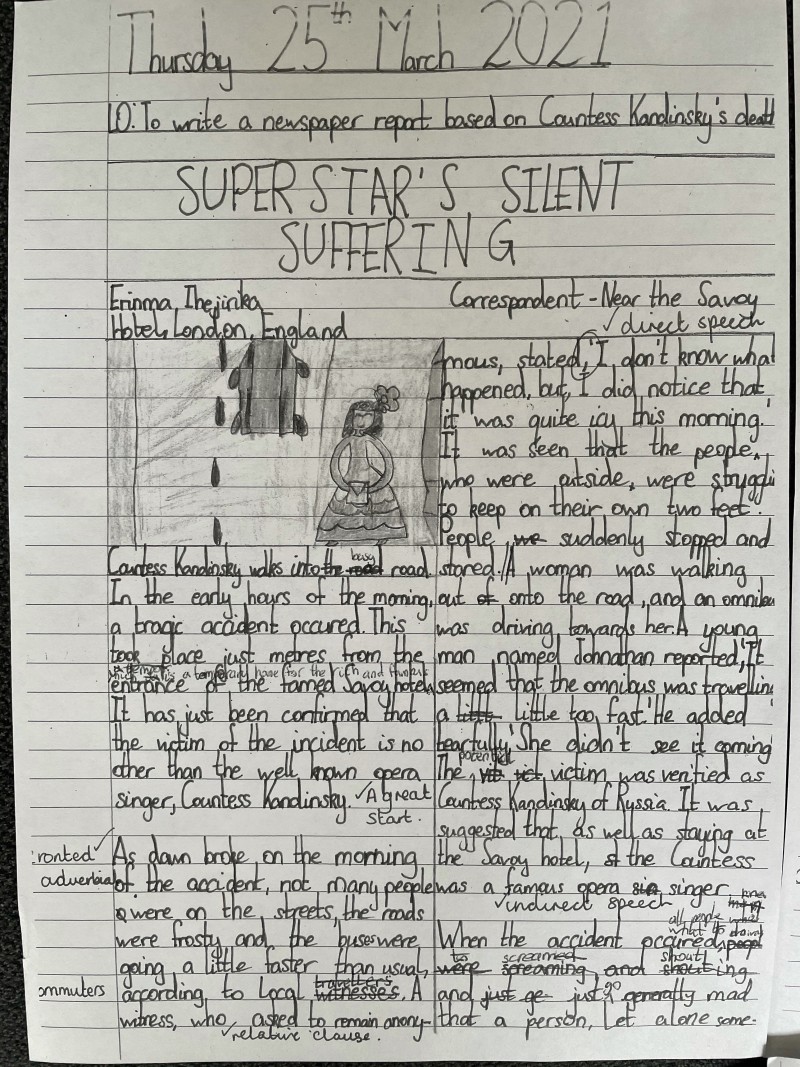 Thursday 25th March 2021
LO: To write a newspaper report based on Countess Kandinsky's death
SUPERSTAR'S SILENT
SUFFERING
Erinma Ihejirika
Correspondent - Near the Savoy
Hotel, London, England
Countess Kandinsky walks into the busy road road
In the early hours of the morning,
a tragic accident occured. This
took place just metres from the
entrance of the famed Savoy hotel
It has just been confirmed that
the victim of the incident is no
other than the well known opera
singer, Countess Kandinsky. ✓A great
start.
fronted ✓
adverbial
As dawn broke on the morning
of the accident, not many people
were on the streets, the roads
were frosty and the buses were
going a little faster than usual,
commuters
travellers
according to local witnesses. A
witness, who asked to remain anony-
✓relative clause.
✓ direct speech
mous, stated, 'I don't know what
happened, but, I did notice that
it was quite icy this morning.'
It was seen that the people,
who were outside, were struggli
to keep on their own two feet.
People we suddenly stopped and
stared.//A woman was walking
out of onto the road, and an omnibu
was driving towards her. A young
man named Johnathan reported, 'It
seemed that the omnibus was travellin
a little little too fast.' He added
tearfully, 'She didn't see it coming
potential
The victim was verified as
Countess Kandinsky of Russia. It was
suggested that, as well as staying at
the Savoy hotel, the Countess
was a famous opera sin singer
✓indirect speech
all people
When the accident occured, peop
to screamed shout
were screaming and shouting
go
and just ge just generally mad
that a person, let alone some-